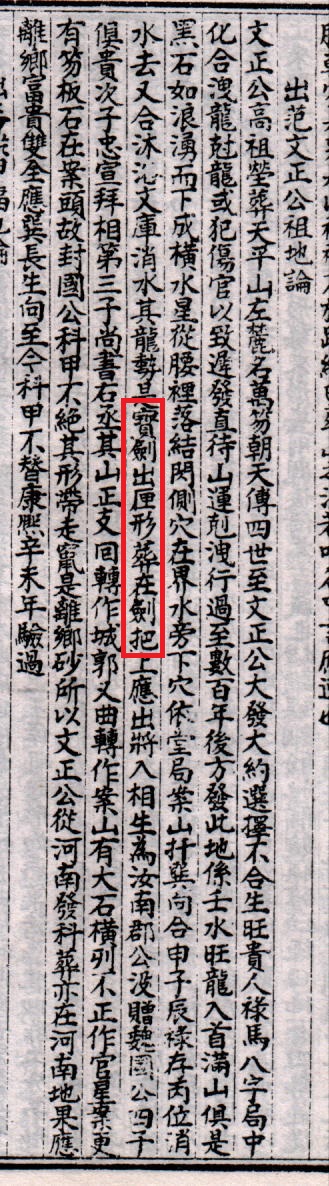 出范文正公祖地論
文正公高祖塋葬天平山左麓名萬笏朝天傳四世至文正公大發大約選擇不合生旺貴人祿馬八字局中
化合洩龍尅龍或犯傷官以致遲發直待山運剋洩行過至數百年後方發此地係壬水旺龍入首滿山俱是
黑石如浪湧而下成橫水星從腰裡落結閃側穴在界水旁下穴依堂局案山扦巽向合申子辰祿存丙位消
水去又合沐沁文庫消水其龍勢是寶劍出匣形葬在劍把上應出將入相生為汝南郡公没贈魏國公四子
俱貴次子忠宣拜相第三子尚書右丞其山正支回轉作城郭又曲轉作案山有大石橫列不正作官星案更
有笏板石在案頭故封國公科甲不絕其形帶走竄是離鄉砂所以文正公從河南發科葬亦在河南地果應
離鄉富貴雙全應巽長生向至今科甲不替康熙辛未年驗過